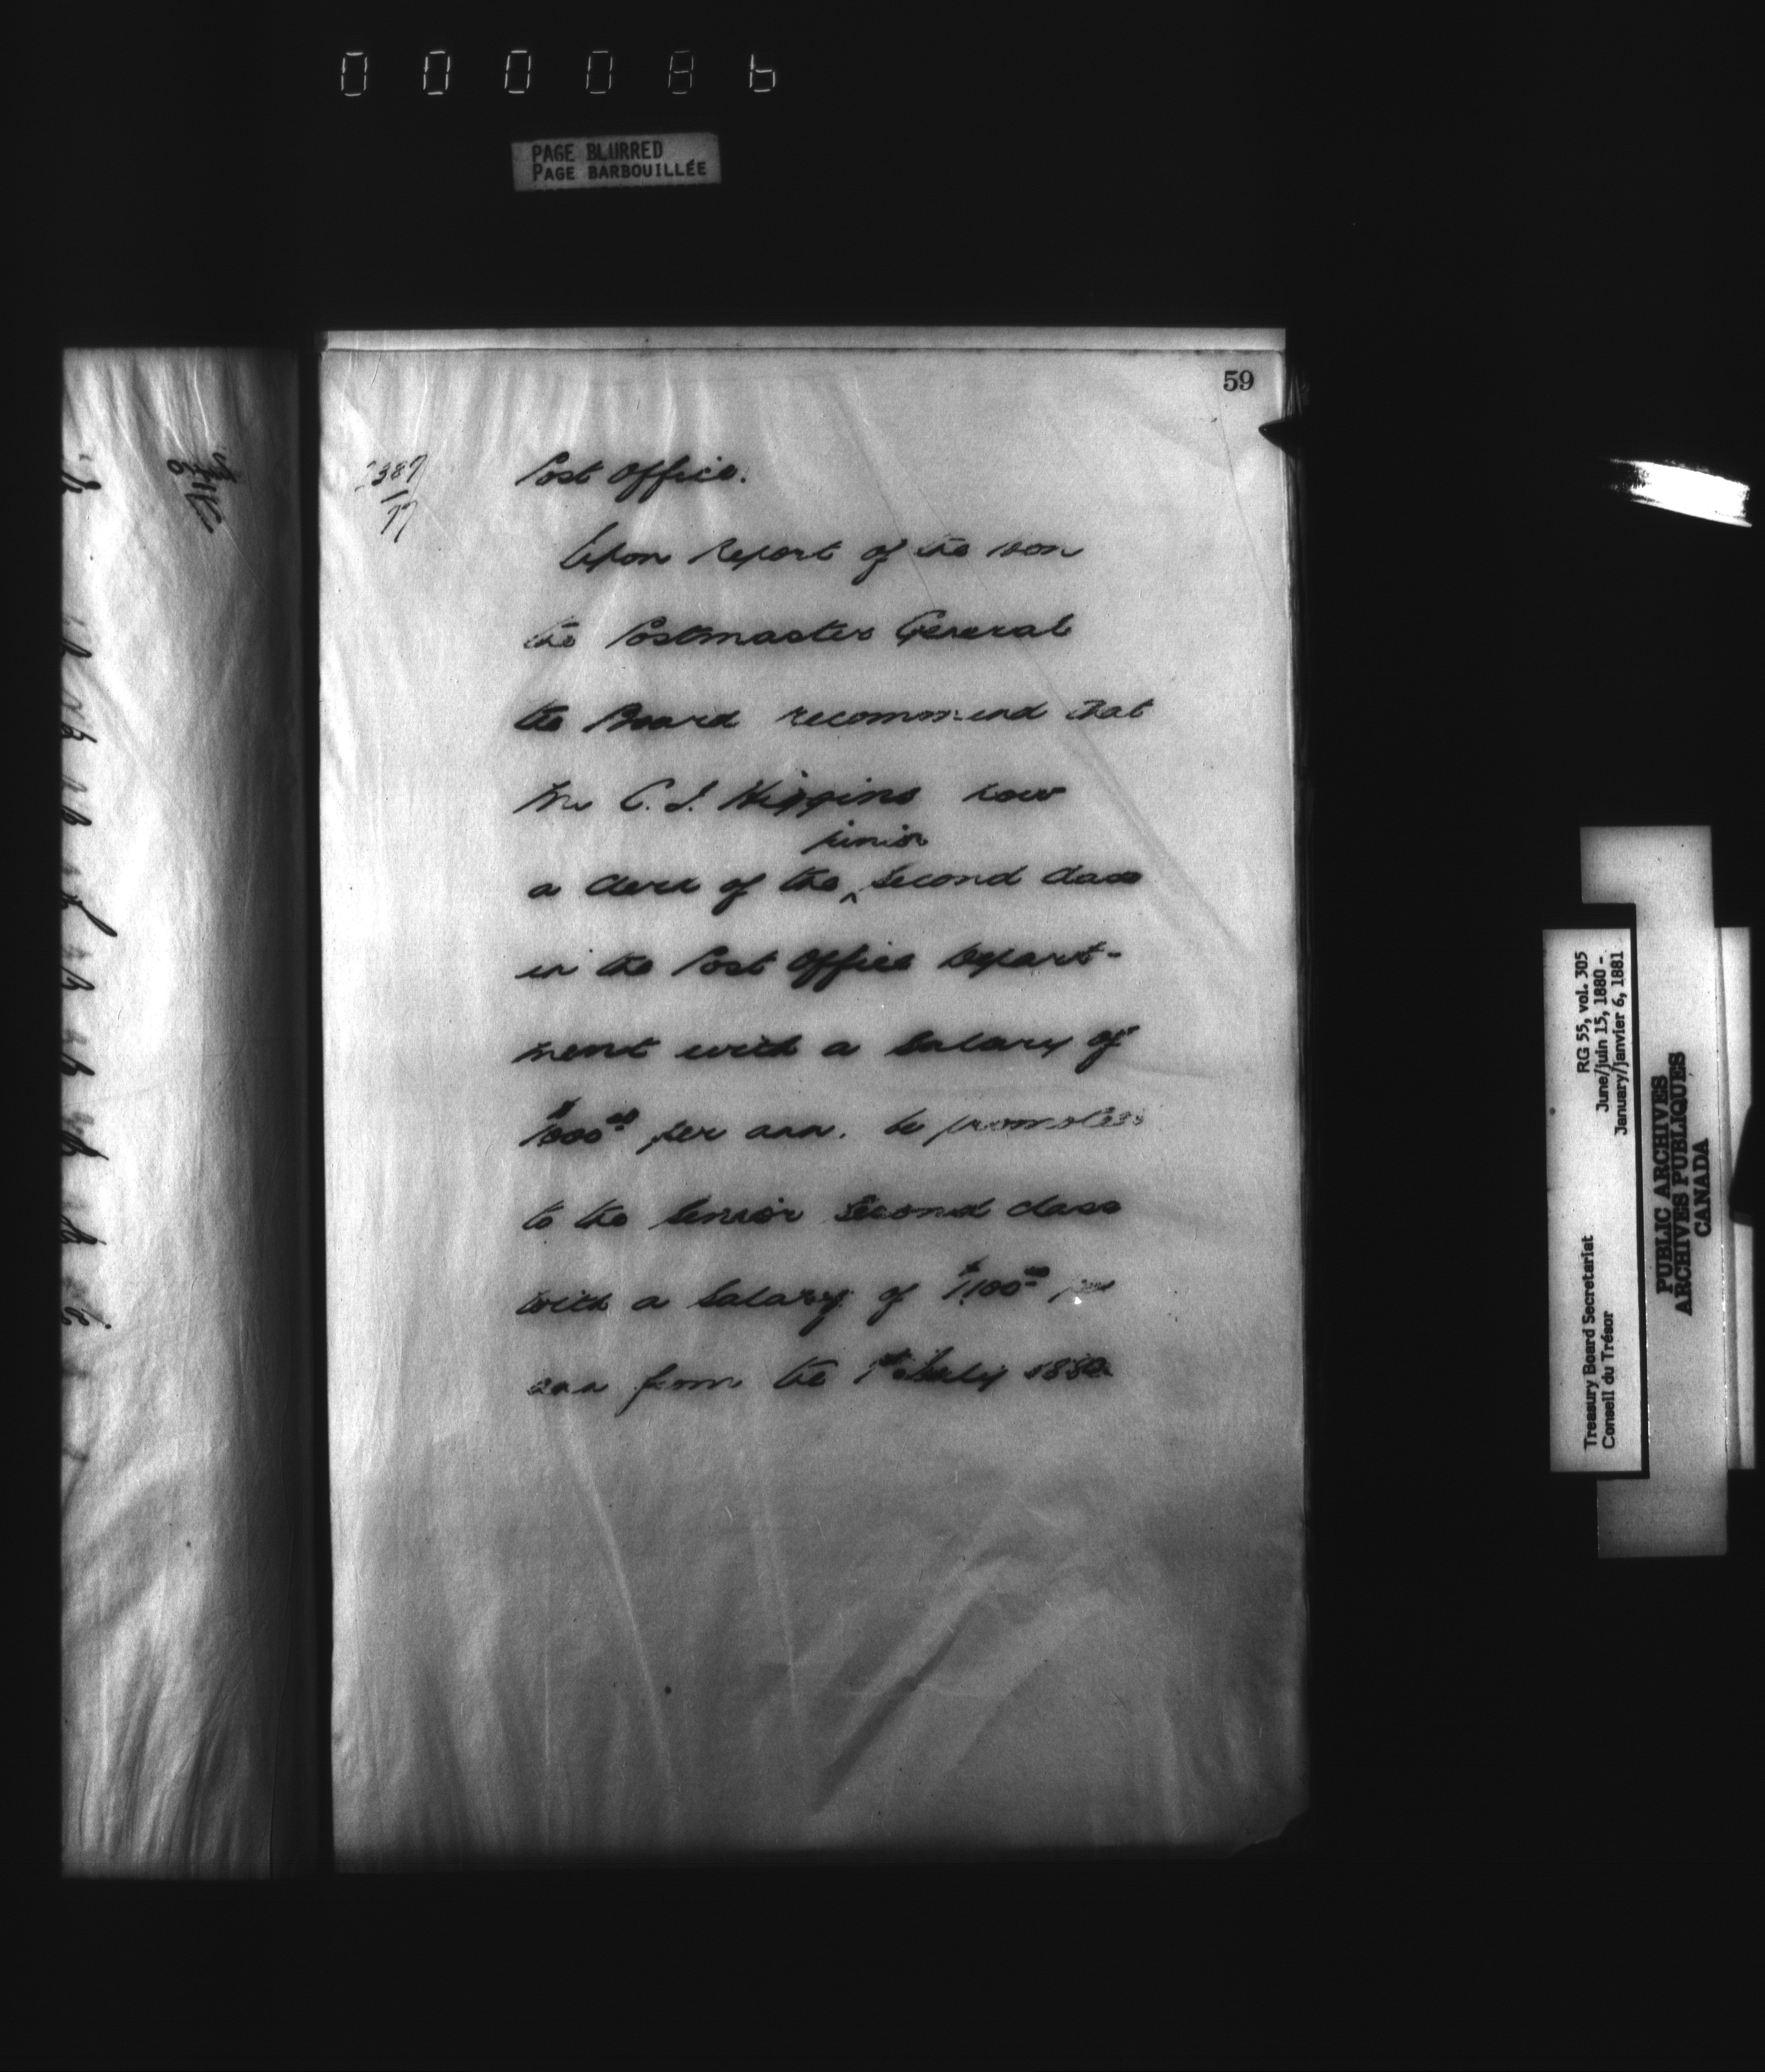 000086
PAGE BLURRED
PAGE BARBOUILLÉE
59
387
77
Post Office.
Upon Report of the Hon
the Postmaster General
the Board recommend that
Mr C. J. Higgins now
junior
a clerk of the ^ Second class
in the Post Office Depart-
ment with a Salary of
$1000.00 per ann. be promoted
to the Senior Second class
with a Salary of $1100.00 per
ann from the 1st July 1880
RG 55, vol. 305
June/juin 15, 1880 -
January/janvier 6, 1881
Treasury Board Secretariat
Conseil du Trésor
PUBLIC ARCHIVES
ARCHIVES PUBLIQUES
CANADA